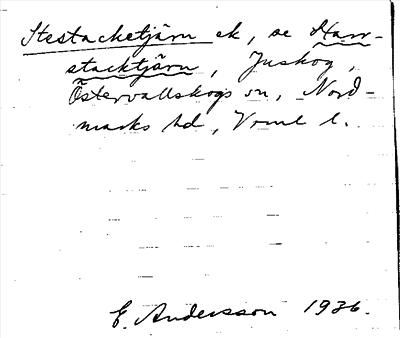 Stestacketjärn ek, se Harr-
stacktjärn, Juskog,
Östervallskogs sn, Nord-
marks hd, Vrml l.
E. Andersson 1936.